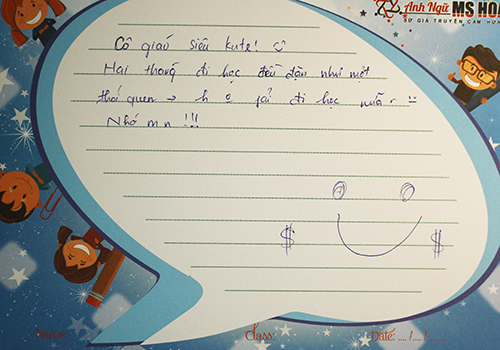 Anh Ngữ MS HOA
SỨ GIẢ TRUYỀN CẢM HỨN
Cô giáo siêu kute!
Hai tháng đi học đều đặn như một
thói quen → h o fải đi học nữa
Nhớ mn !!!
$ $
Name:
Class:
Date: ..../..../....